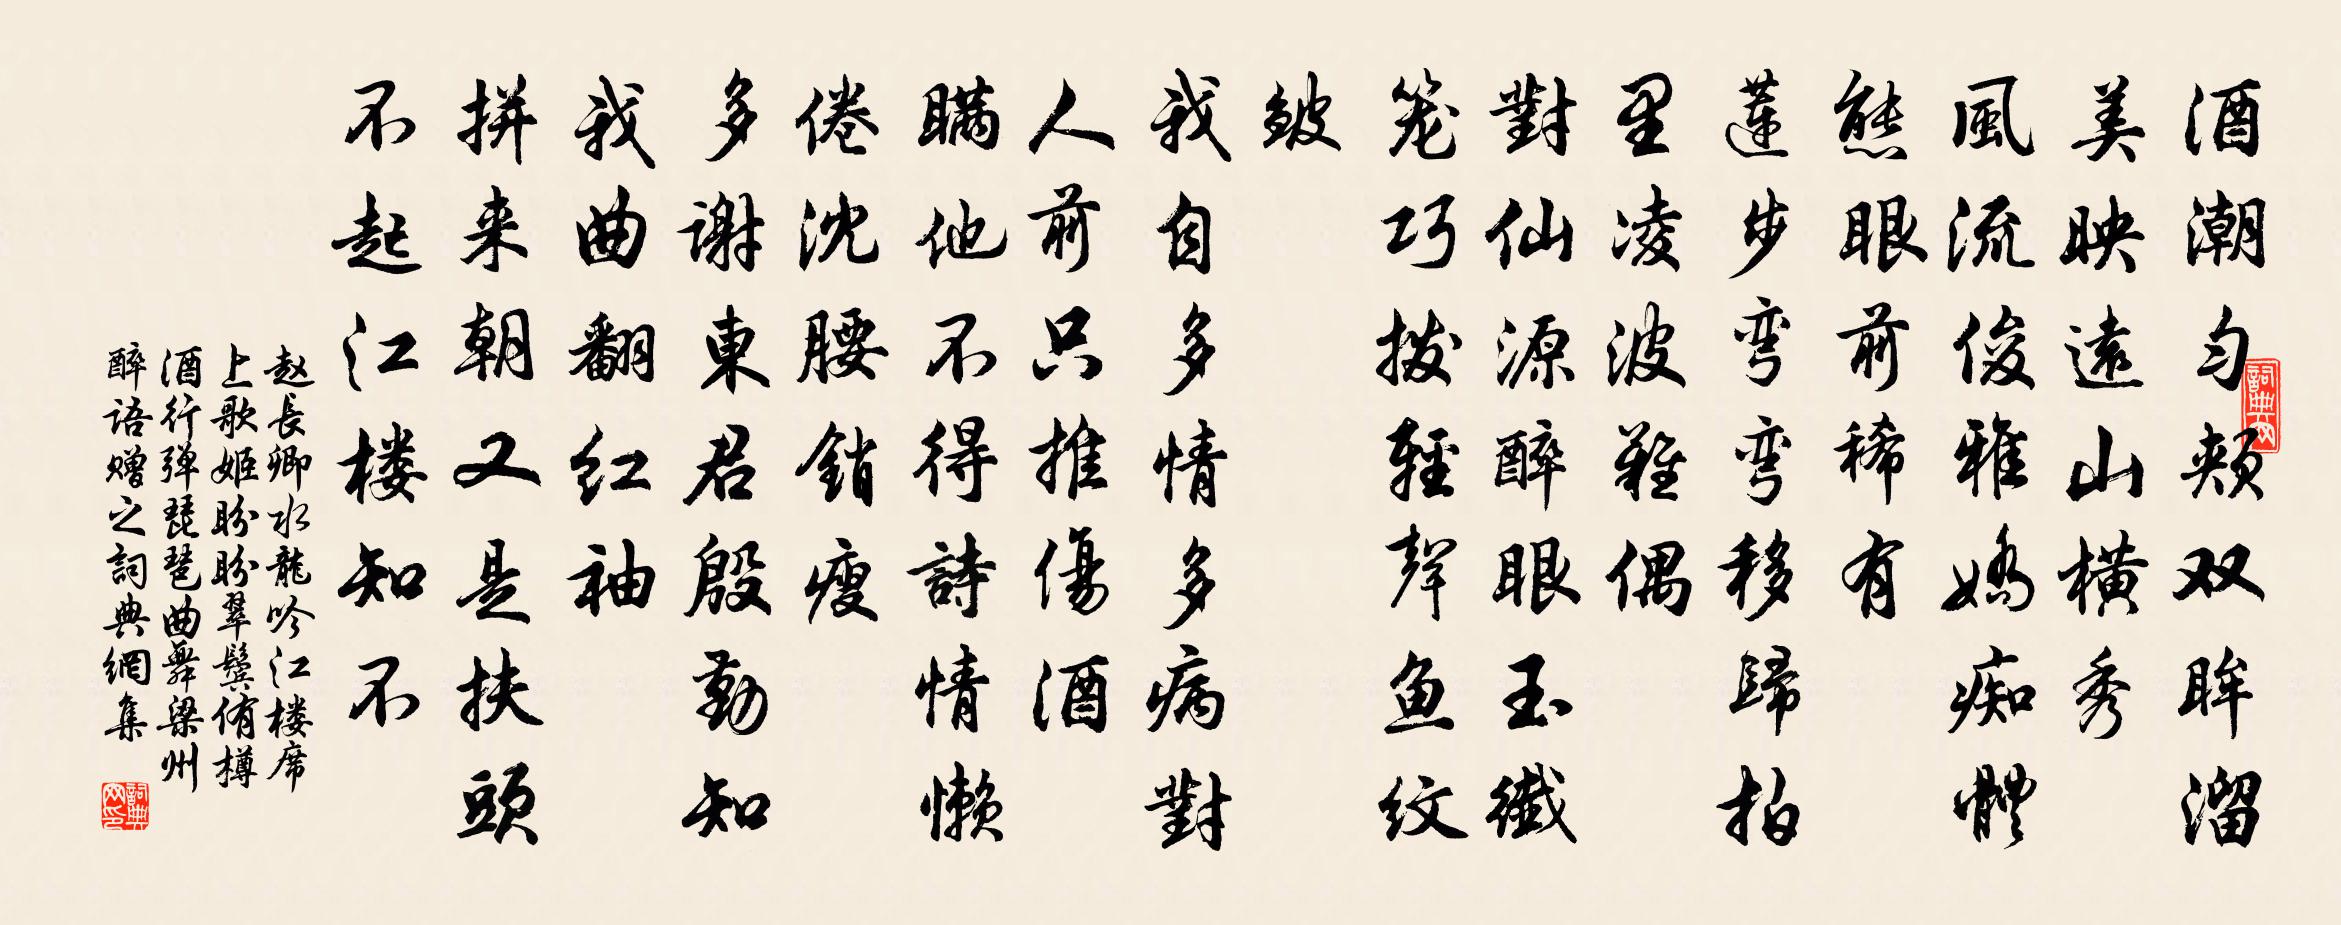 酒潮匀頰双眸溜
美映遠山橫秀
風流俊雅嬌痴體
態眼前稀有
蓮步弯弯移歸拍
里凌波難偶
對仙源醉眼玉纖
笼巧拨輕聲鱼纹
皱
我自多情多病對
人前只推傷酒
瞞他不得詩情懒
倦沈腰銷瘦
多謝東君殷勤知
我曲翻红袖
拼来朝又是扶頭
不起江楼知不
赵長卿水龍吟江楼席
上歌姬盼盼翠鬟侑樽
酒行弹琵琶曲舞梁州
醉语赠之詞典網集
詞典网
詞典网印